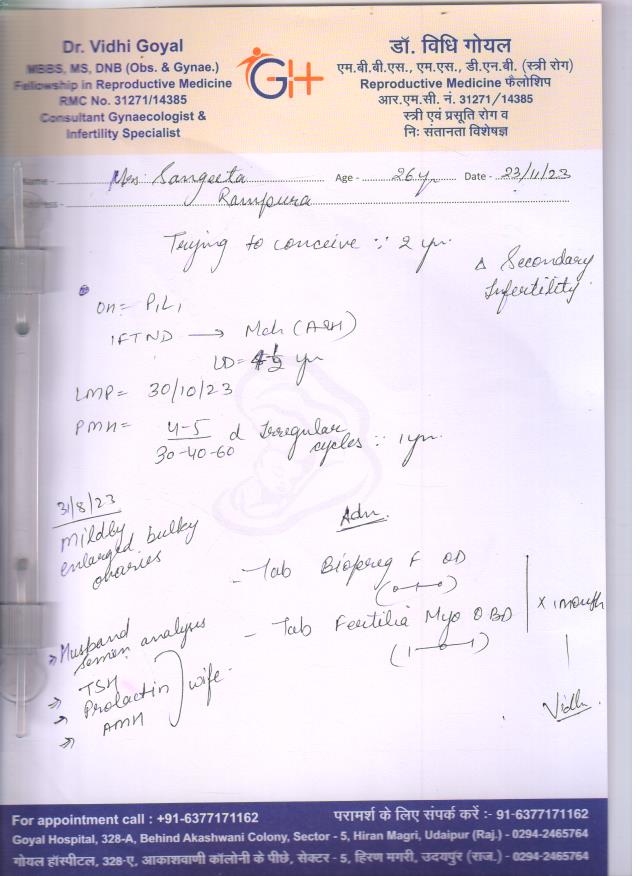 Dr. Vidhi Goyal
MBBS, MS, DNB (Obs. & Gynae.)
Fellowship in Reproductive Medicine
RMC No. 31271/14385
Consultant Gynaecologist &
Infertility Specialist
GH
डॉ. विधि गोयल
एम.बी.बी.एस., एम.एस., डी.एन.बी. (स्त्री रोग)
Reproductive Medicine फैलोशिप
आर.एम.सी. नं. 31271/14385
स्त्री एवं प्रसूति रोग व
निः संतानता विशेषज्ञ
Name - Mrs. Sangeeta Age - 26 yr Date - 23/11/23
Address - Rampura
Trying to conceive ∵ 2 yr.
Δ Secondary
Infertility
OH = P1L1
1FTND → Mch (A&H)
LD = 4½ yr
LMP = 30/10/23
PMH = 4-5 / 30-40-60 d Irregular
cycles ∵ 1 yr.
31/8/23
Mildly
enlarged bulky
ovaries
Adv.
- Tab Biopreg F OD
(0-0-0)
- Tab Fertilia Myo BD
(1-0-1)
x 1 month
Husband
semen analysis
TSH
Prolactin
AMH
wife
Vidhi
For appointment call : +91-6377171162 परामर्श के लिए संपर्क करें :- 91-6377171162
Goyal Hospital, 328-A, Behind Akashwani Colony, Sector - 5, Hiran Magri, Udaipur (Raj.) - 0294-2465764
गोयल हॉस्पीटल, 328-ए, आकाशवाणी कॉलोनी के पीछे, सेक्टर - 5, हिरण मगरी, उदयपुर (राज.) - 0294-2465764